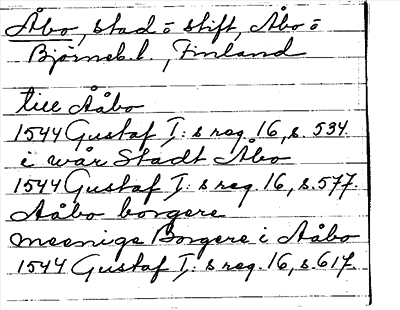 Åbo, stad o stift, Åbo o
Björneb.l., Finland
till Ååbo
1544 Gustaf I:s reg. 16, s. 534.
i wår Stadt Åbo
1544 Gustaf I:s reg. 16, s. 577.
Aåbo borgere
meenige Borgere i Aåbo
1544 Gustaf I:s reg. 16, s. 617.